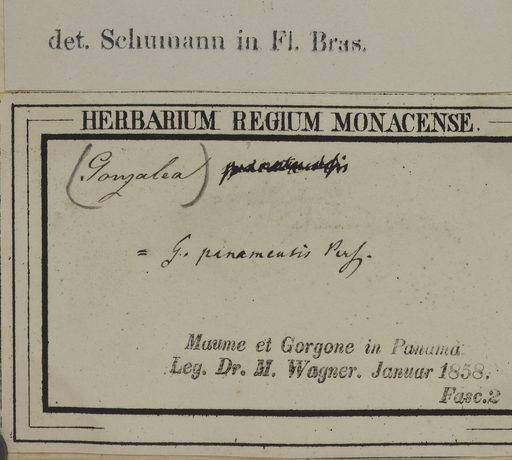 det. Schumann in Fl. Bras.
HERBARIUM REGIUM MONACENSE.
(Gonzalea)
= G. panamensis Pers.
Maume et Gorgone in Panamà
Leg. Dr. M. Wagner. Januar 1858.
Fasc.2